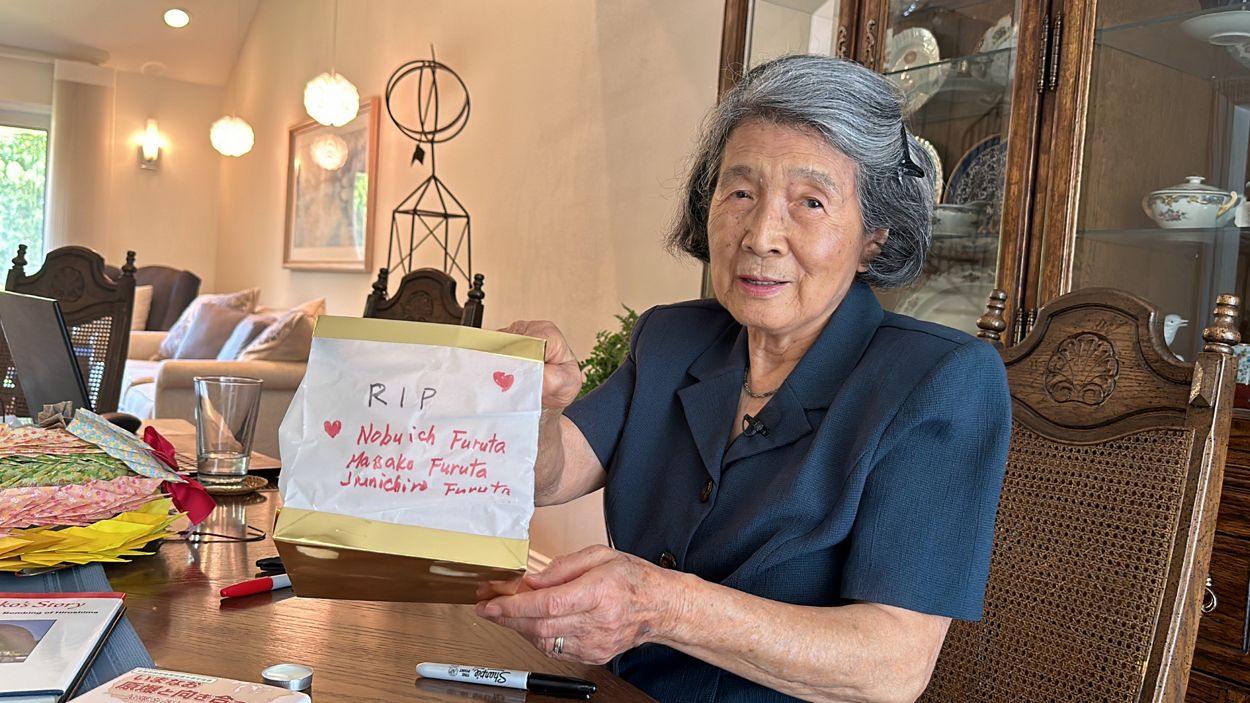 RIP
Nobuich Furuta
Masako Furuta
Jiunichiro Furuta
ko's Story
Bombing of Hiroshima
Sharpie
いまなお
原爆と向き合って